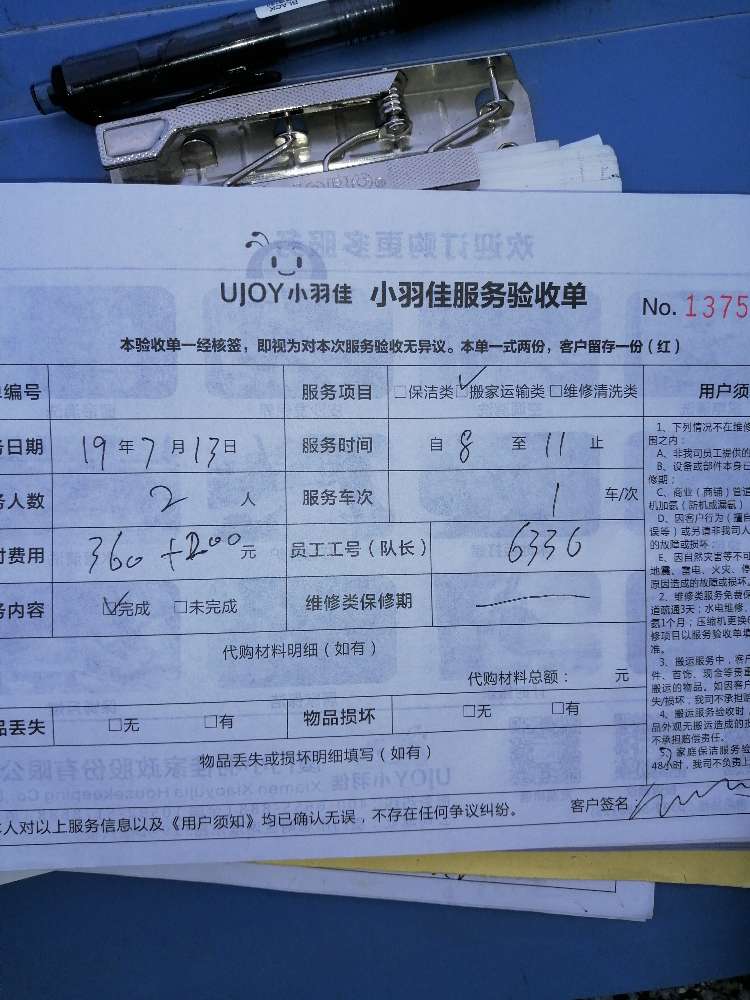 BLACK
欢迎订购更多服务
UJOY小羽佳 小羽佳服务验收单
No. 1375
本验收单一经核签，即视为对本次服务验收无异议。本单一式两份，客户留存一份（红）
编号 服务项目 □保洁类 ☑搬家运输类 □维修清洗类 用户须
日期 19年7月13日 服务时间 自 8 至 11 止
人数 2 人 服务车次 1 车/次
付费用 360+200元 员工工号（队长） 6336
务内容 ☑完成 □未完成 维修类保修期
代购材料明细（如有）
代购材料总额： 元
品丢失 □无 □有 物品损坏 □无 □有
物品丢失或损坏明细填写（如有）
人对以上服务信息以及《用户须知》均已确认无误，不存在任何争议纠纷。 客户签名
1、下列情况不在维修
围之内：
A、非我司员工提供的
B、设备或部件本身已
修期；
C、商业（商铺）管道
机加氨（防机或漏氨）
D、因客户行为（擅自
误等）或另请非我司人
的故障或损坏；
E、因自然灾害等不可
地震、雷电、火灾、停
原因造成的故障或损坏。
2、维修类服务免费保
道疏通3天；水电维修、
氨1个月；压缩机更换
修项目以服务验收单填
准。
3、搬运服务中，客户
件、首饰、现金等贵重
搬运的物品。如因客户
失/损坏，我司不承担赔
4、搬运服务验收时，
品外观无搬运造成的损
不承担赔偿责任。
5、家庭保洁服务验
48小时，我司不负责上
UJOY小羽佳 厦门小羽佳家政股份有限公
Xiamen Xiaoyujia Housekeeping Co.